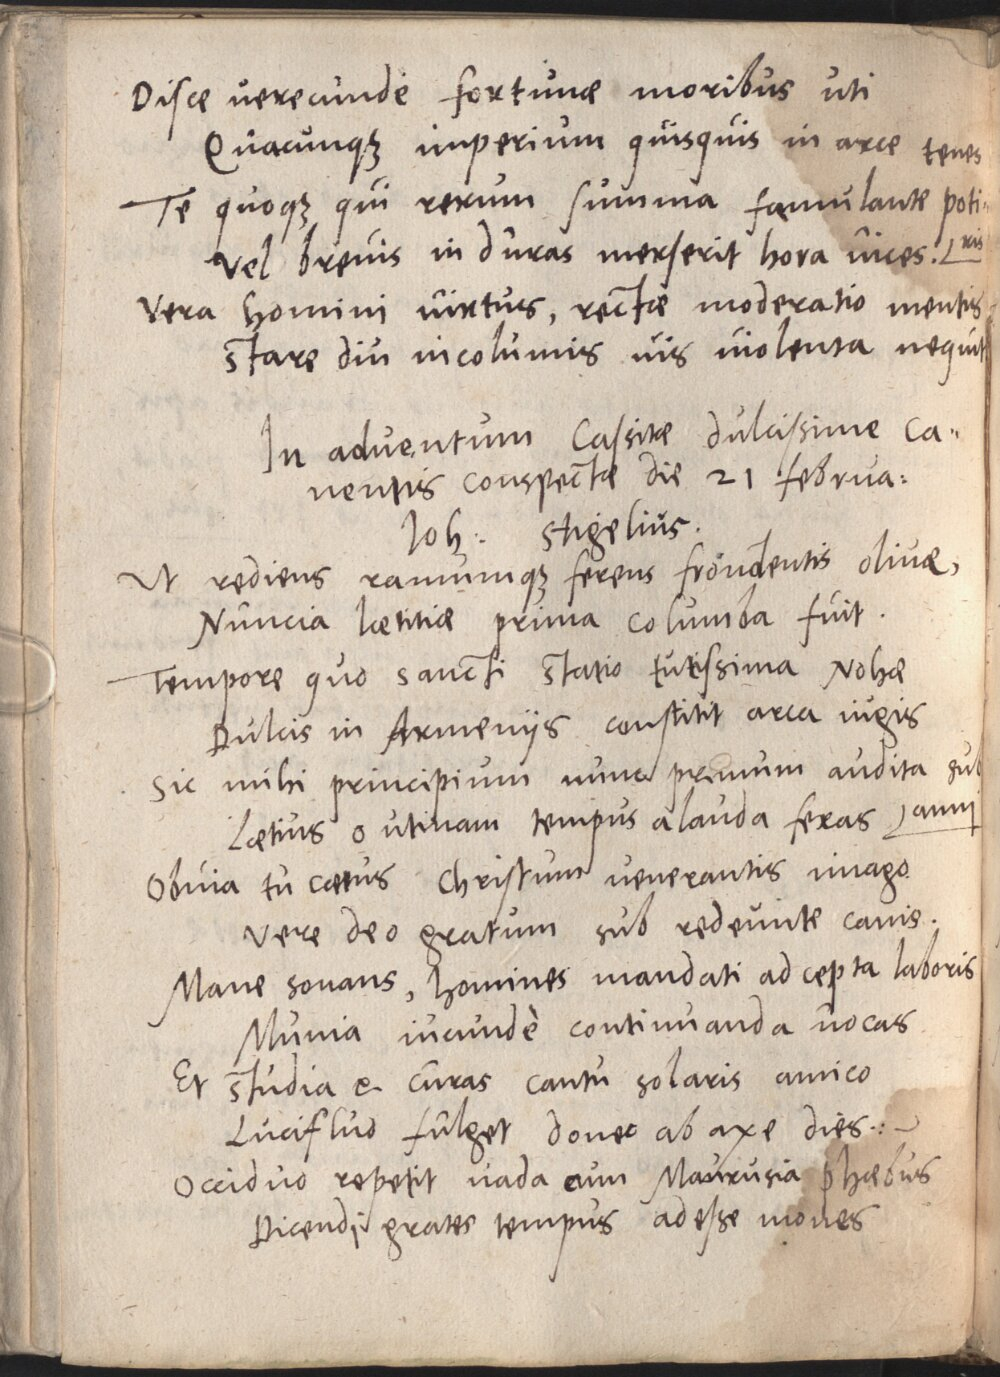 Disce verecundè fortunæ moribus uti
Quacunqꝫ imperium quisquis in arce tenes
Te quoqꝫ qui rerum summa famulante poti-
Vel brevis in duras merserit hora vices. ris
Vera homini virtus, rectæ moderatio mentis
Stare diu incolumis vis violenta nequit
In adventum Cassitæ dulcissime ca-
nentis conspectæ die 21 februa:
Ioh: Stigelius.
Ut rediens ramumqꝫ ferens frondentis olivæ,
Nuncia lætitiæ prima columba fuit.
Tempore quo sancti statio tutissima Nohæ
Dulcis in Armenijs constitit arca iugis
Sic mihi principium nunc primum audita sub
Lætius o utinam tempus alauda feras anni
Obvia tu cætus Christum venerantis imago
Vere deo gratum sub redeunte canis.
Mane sonans, homines mandati ad cepta laboris
Munia iucundè continuanda vocas
Et studia & curas cantu solaris amico
Lucifluo fulget donec ab axe dies.
Occiduo repetit vada cum Maurusia phæbus
Dicendi grates tempus adesse mones